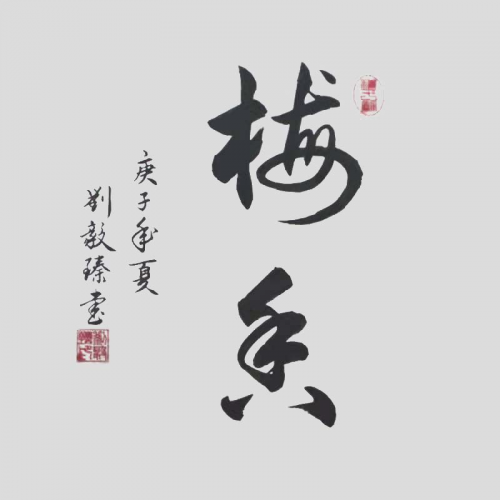 梅香
庚子年夏
劉毅臻書